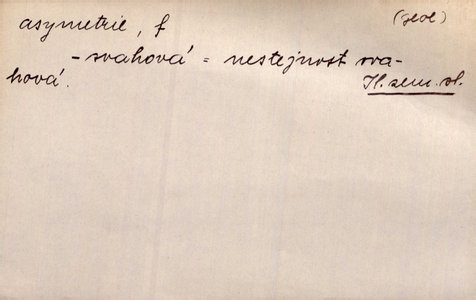 asymetrie, f (geol)
- svahová = nestejnost sva-
hová. Sl. zem. sl.